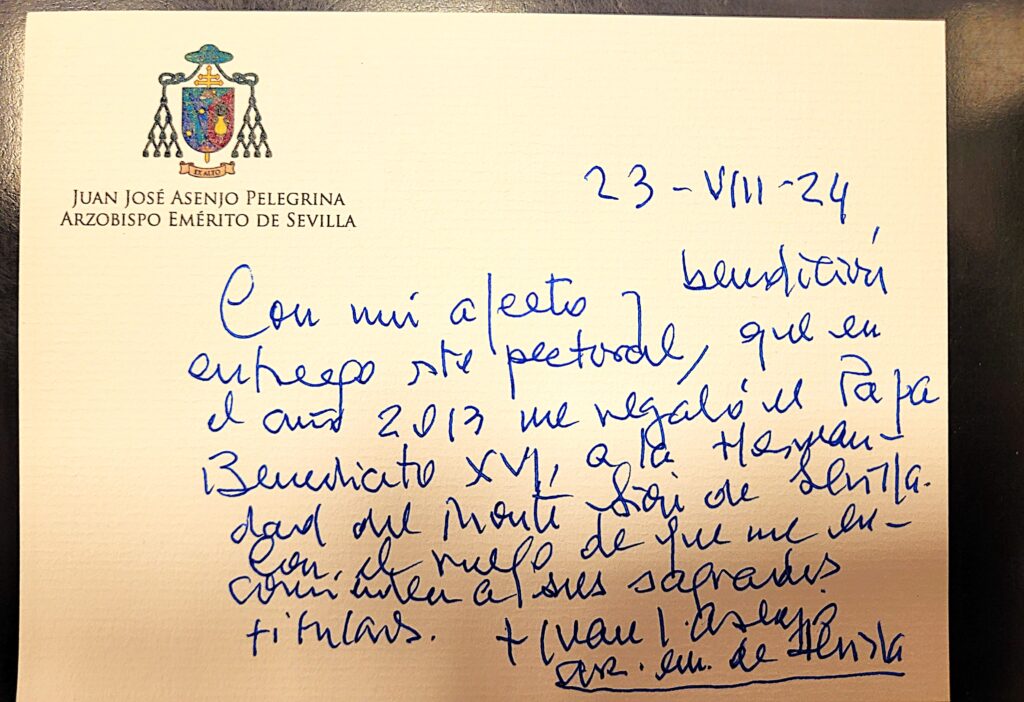 EX ALTO
JUAN JOSÉ ASENJO PELEGRINA
ARZOBISPO EMÉRITO DE SEVILLA
23-VIII-24
Con mi afecto y bendición
entrego este pectoral, que en
el año 2013 me regaló el Papa
Benedicto XVI, a la Herman-
dad del Monte Sión de Sevilla.
Con el ruego de que me en-
comienden a sus sagrados
titulares. + Juan J. Asenjo
arz. em. de Sevilla